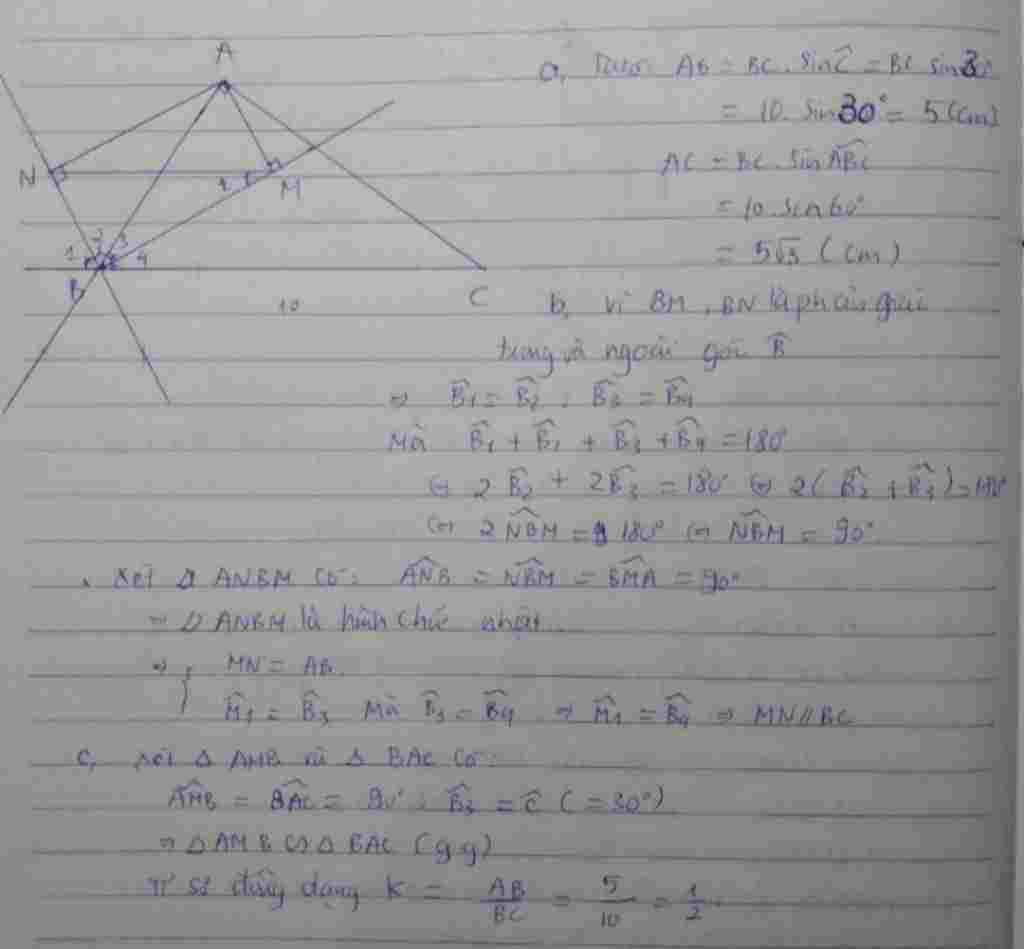 A
N
M
B
C
1 2 3 4
10
a, Ta có: AB = BC. sin Ĉ = BC sin 30°
= 10. sin 30° = 5 (cm)
AC = BC. sin ABC
= 10. sin 60°
= 5√3 (cm)
b, Vì BM, BN là phân giác
trong và ngoài góc B̂
=> B̂1 = B̂2 ; B̂3 = B̂4
Mà B̂1 + B̂2 + B̂3 + B̂4 = 180°
⇔ 2B̂2 + 2B̂3 = 180° ⇔ 2(B̂2 + B̂3) = 180°
⇔ 2 NBM = 180° ⇔ NBM = 90°
. Xét ANBM có: ANB = NBM = BMA = 90°
=> ANBM là hình chữ nhật.
=> { MN = AB
M̂1 = B̂3 Mà B̂3 = B̂4 => M̂1 = B̂4 => MN // BC
c, Xét Δ AMB và Δ BAC có:
AMB = BAC = 90° ; B̂3 = Ĉ (= 30°)
=> Δ AMB ∽ Δ BAC (g.g)
Tỉ số đồng dạng k = AB/BC = 5/10 = 1/2